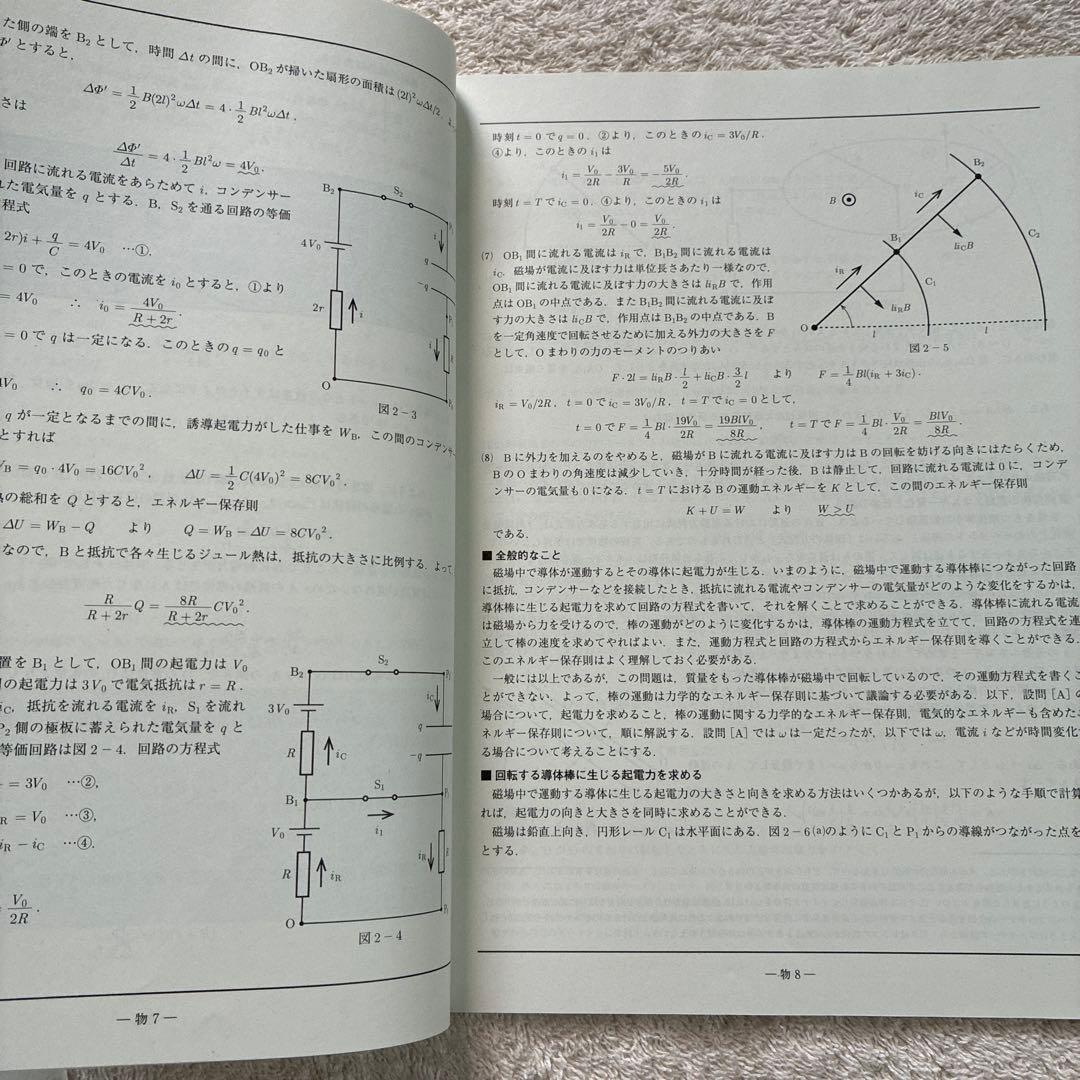 た側の端を B₂ として，時間 Δt の間に，OB₂ が掃いた扇形の面積は (2l)²ωΔt/2．
Φ′ とすると，
ΔΦ′ = 1/2 B(2l)²ωΔt = 4·1/2 Bl²ωΔt．
さは
ΔΦ′/Δt = 4·1/2 Bl²ω = 4V₀．
回路に流れる電流をあらためて i，コンデンサー
た電気量を q とする．B，S₂ を通る回路の等価
程式
2r)i + q/C = 4V₀ …①．
= 0 で，このときの電流を i₀ とすると，①より
= 4V₀ ∴ i₀ = 4V₀/(R + 2r)．
= 0 で q は一定になる．このときの q = q₀ と
4V₀ ∴ q₀ = 4CV₀．
B₂
S₂
P₂
4V₀
i
q
−q
2r
i
P₁
i
R
O
P₀
図2－3
q が一定となるまでの間に，誘導起電力がした仕事を W_B，この間のコンデンサー
とすれば
W_B = q₀·4V₀ = 16CV₀²， ΔU = 1/2 C(4V₀)² = 8CV₀²．
熱の総和を Q とすると，エネルギー保存則
ΔU = W_B − Q より Q = W_B − ΔU = 8CV₀²．
なので，B と抵抗で各々生じるジュール熱は，抵抗の大きさに比例する．よって，
R/(R + 2r) Q = 8R/(R + 2r) CV₀²．
置を B₁ として，OB₁ 間の起電力は V₀
の起電力は 3V₀ で電気抵抗は r = R．
i_C，抵抗を流れる電流を i_R，S₁ を流れ
P₂ 側の極板に蓄えられた電気量を q と
等価回路は図2－4．回路の方程式
= 3V₀ …②，
R = V₀ …③，
i_R − i_C …④．
V₀/2R．
B₂
S₂
P₂
3V₀
i_C
q
−q
R
i_C
S₁
B₁
P₁
i₁
V₀
i_R
R
R
i_R
O
P₀
図2－4
― 物 7 ―
時刻 t = 0 で q = 0．②より，このときの i_C = 3V₀/R．
④より，このときの i₁ は
i₁ = V₀/2R − 3V₀/R = −5V₀/2R．
時刻 t = T で i_C = 0．④より，このときの i₁ は
i₁ = V₀/2R − 0 = V₀/2R．
(7) OB₁ 間に流れる電流は i_R で，B₁B₂ 間に流れる電流は
i_C．磁場が電流に及ぼす力は単位長さあたり一様なので，
OB₁ 間に流れる電流に及ぼす力の大きさは li_RB で，作用
点は OB₁ の中点である．また B₁B₂ 間に流れる電流に及ぼ
す力の大きさは li_CB で，作用点は B₁B₂ の中点である．B
を一定角速度で回転させるために加える外力の大きさを F
として，O まわりの力のモーメントのつりあい
B₂
i_C
B
B₁
li_CB
C₂
i_R
C₁
li_RB
O
l
l
図2－5
F·2l = li_RB·l/2 + li_CB·3/2 l より F = 1/4 Bl(i_R + 3i_C)．
i_R = V₀/2R， t = 0 で i_C = 3V₀/R， t = T で i_C = 0 として，
t = 0 で F = 1/4 Bl·19V₀/2R = 19BlV₀/8R， t = T で F = 1/4 Bl·V₀/2R = BlV₀/8R．
(8) B に外力を加えるのをやめると，磁場が B に流れる電流に及ぼす力は B の回転を妨げる向きにはたらくため，
B の O まわりの角速度は減少していき，十分時間が経った後，B は静止して，回路に流れる電流は 0 に，コンデ
ンサーの電気量も 0 になる．t = T における B の運動エネルギーを K として，この間のエネルギー保存則
K + U = W より W > U
である．
■ 全般的なこと
磁場中で導体が運動するとその導体に起電力が生じる．いまのように，磁場中で運動する導体棒につながった回路
に抵抗，コンデンサーなどを接続したとき，抵抗に流れる電流やコンデンサーの電気量がどのような変化をするかは，
導体棒に生じる起電力を求めて回路の方程式を書いて，それを解くことで求めることができる．導体棒に流れる電流
は磁場から力を受けるので，棒の運動がどのように変化するかは，導体棒の運動方程式を立てて，回路の方程式を連
立して棒の速度を求めてやればよい．また，運動方程式と回路の方程式からエネルギー保存則を導くことができる．
このエネルギー保存則はよく理解しておく必要がある．
一般には以上であるが，この問題は，質量をもった導体棒が磁場中で回転しているので，その運動方程式を書くこ
とができない．よって，棒の運動は力学的なエネルギー保存則に基づいて議論する必要がある．以下，設問［A］の
場合について，起電力を求めること，棒の運動に関する力学的なエネルギー保存則，電気的なエネルギーも含めたエ
ネルギー保存則について，順に解説する．設問［A］では ω は一定だったが，以下では ω，電流 i などが時間変化す
る場合について考えることにする．
■ 回転する導体棒に生じる起電力を求める
磁場中で運動する導体に生じる起電力の大きさと向きを求める方法はいくつかあるが，以下のような手順で計算
れば，起電力の向きと大きさを同時に求めることができる．
磁場は鉛直上向き，円形レール C₁ は水平面にある．図2－6(a)のように C₁ と P₁ からの導線がつながった点を
とする．
― 物 8 ―